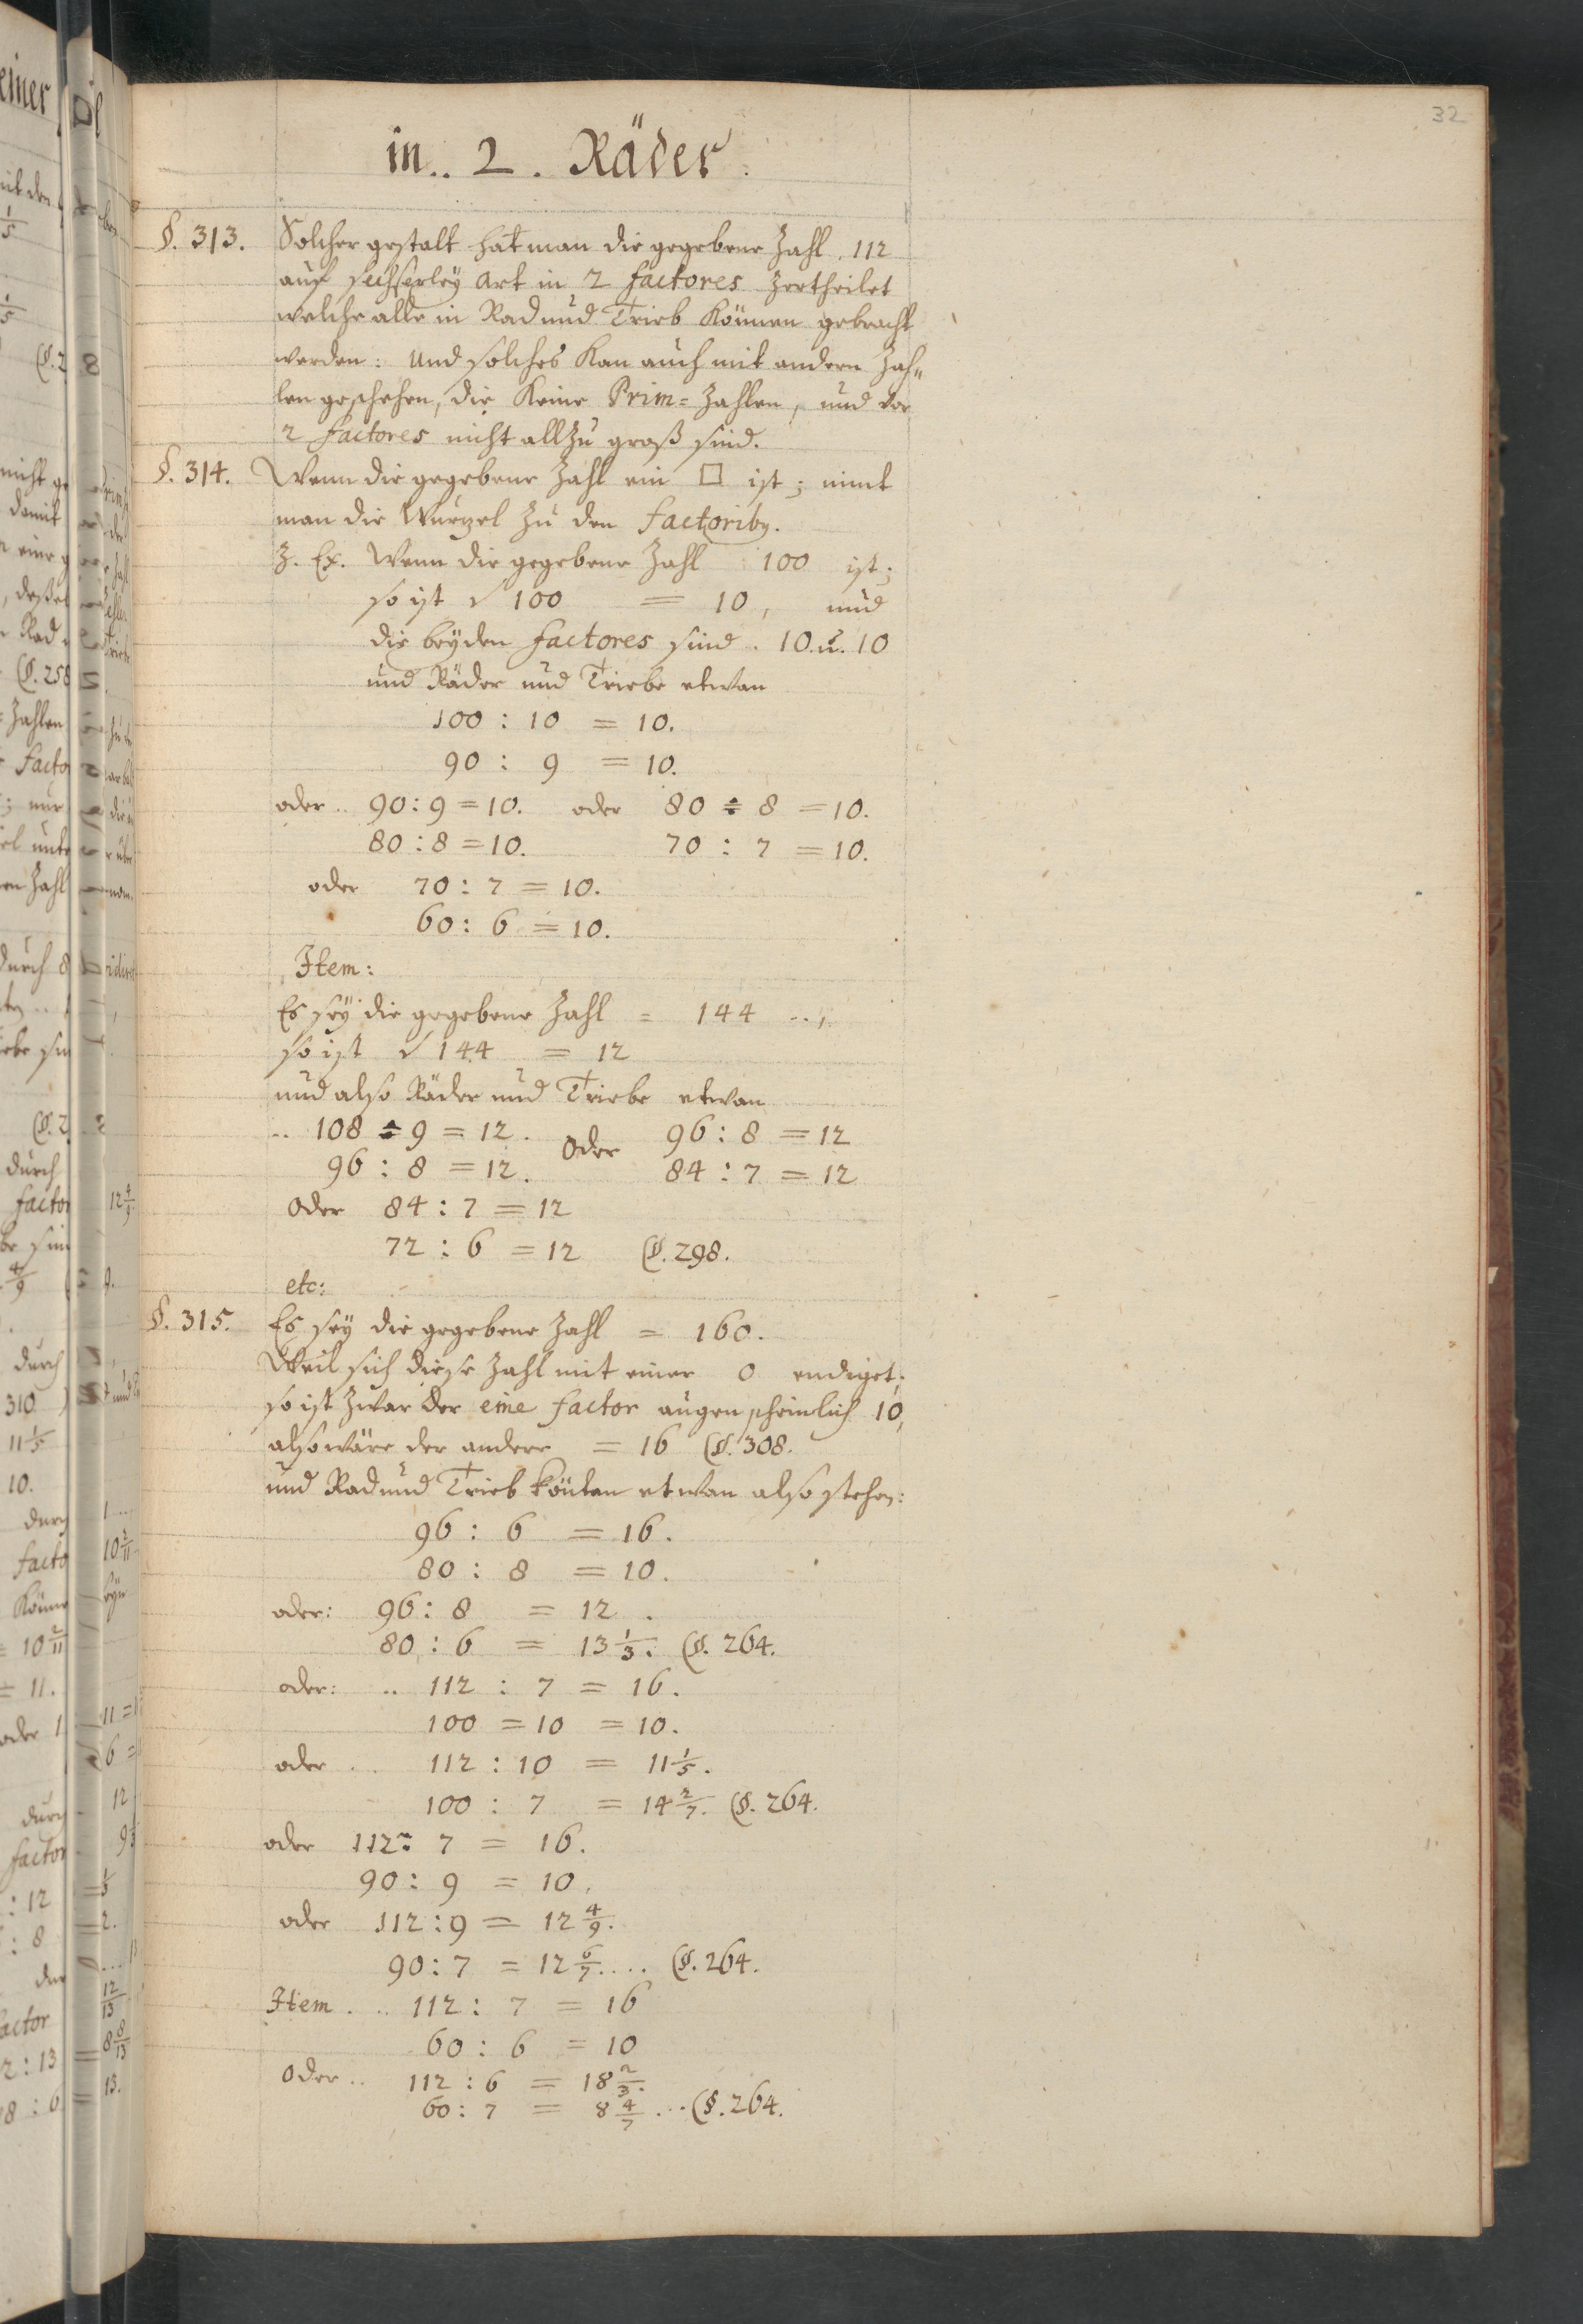 32
in .. 2 . Räder .
§. 313. Solcher gestalt hat man die gegebene Zahl . 112
auf sechserley Art in 2 factores zertheilet
welche alle in Rad und Trieb können gebracht
werden : Und solches kan auch mit andern Zah=
len geschehen, die keine Prim= Zahlen, und vor
2 factores nicht allzu groß sind.
§. 314. Wenn die gegebene Zahl ein □ ist ; nimt
man die Wurzel zu den factoribq.
Z. Ex. Wenn die gegebene Zahl 100 ist ;
so ist √ 100 = 10 , und
die beyden factores sind . 10. u. 10
und Räder und Triebe etwan
100 : 10 = 10.
90 : 9 = 10.
oder .. 90 : 9 = 10. oder 80 ÷ 8 = 10.
80 : 8 = 10. 70 : 7 = 10.
oder 70 : 7 = 10.
60 : 6 = 10.
Item :
Es sey die gegebene Zahl = 144 ..,
so ist √ 144 = 12
und also Räder und Triebe etwan
.. 108 ÷ 9 = 12 . oder 96 : 8 = 12
96 : 8 = 12 . 84 : 7 = 12
oder 84 : 7 = 12
72 : 6 = 12 (§. 298.
etc:
§. 315. Es sey die gegebene Zahl = 160 .
Weil sich diese Zahl mit einer 0 endiget ;
so ist zwar der eine factor augenscheinlich 10,
also wäre der andere = 16 (§. 308.
und Rad und Trieb könten etwan also stehen :
96 : 6 = 16 .
80 : 8 = 10 .
oder : 96 : 8 = 12 .
80 : 6 = 13 1/3 . (§. 264.
oder : .. 112 : 7 = 16 .
100 = 10 = 10 .
oder .. 112 : 10 = 11 1/5 .
100 : 7 = 14 2/7 . (§. 264.
oder 112 : 7 = 16 .
90 : 9 = 10 .
oder 112 : 9 = 12 4/9 .
90 : 7 = 12 6/7 .... (§. 264.
Item . .. 112 : 7 = 16
60 : 6 = 10
oder .. 112 : 6 = 18 2/3 .
60 : 7 = 8 4/7 ... (§. 264.